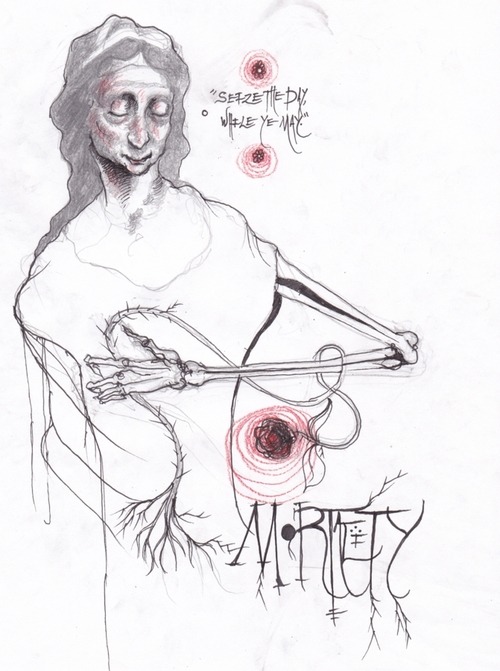 "SEIZE THE DAY,
WHILE YE MAY."
MORTALITY